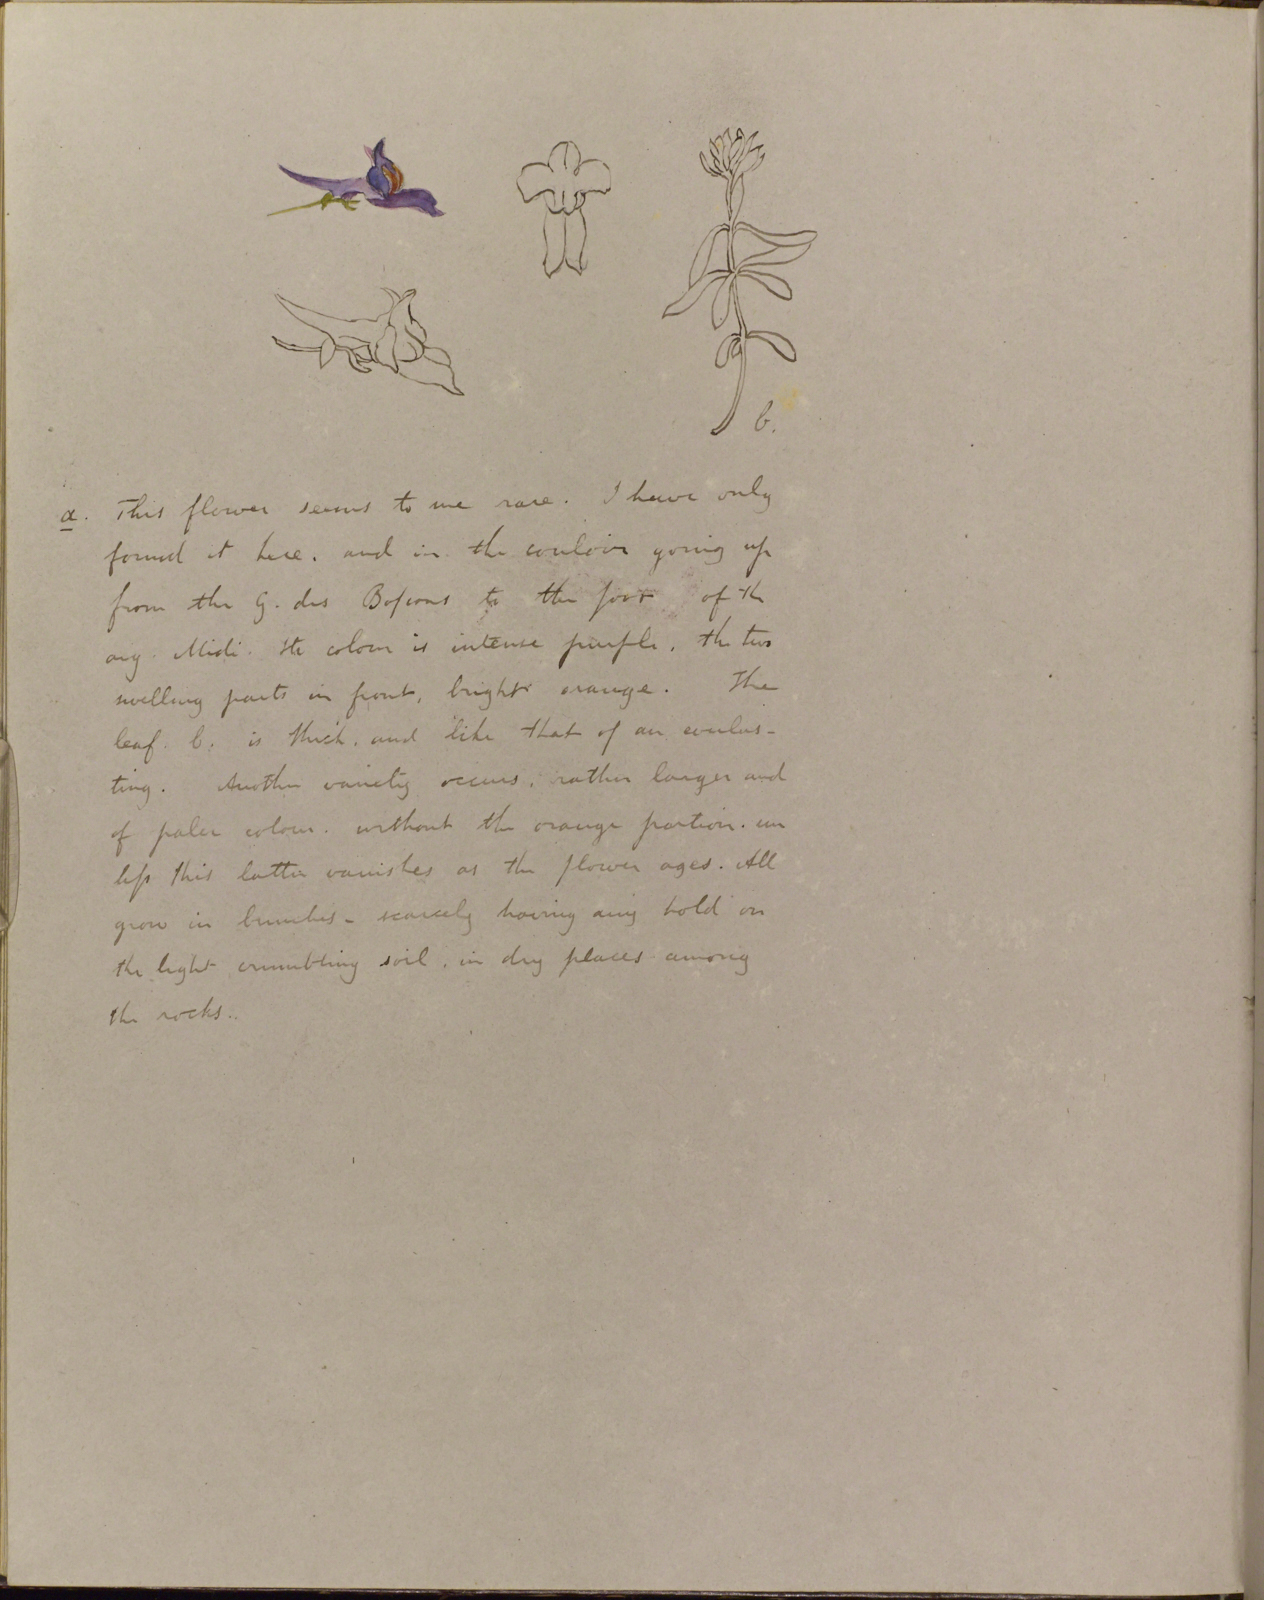 b.
a. This flower seems to me rare. I have only
found it here. and in the couloir going up
from the G. des Bossons to the foot of the
aig. Midi. Its colour is intense purple, the two
swelling parts in front, bright orange. The
leaf. b. is thick, and like that of an everlas-
ting. Another variety occurs, rather larger and
of paler colour. without the orange portion. un
less this latter vanishes as the flower ages. All
grow in bunches - scarcely having any hold on
the light crumbling soil, in dry places among
the rocks..